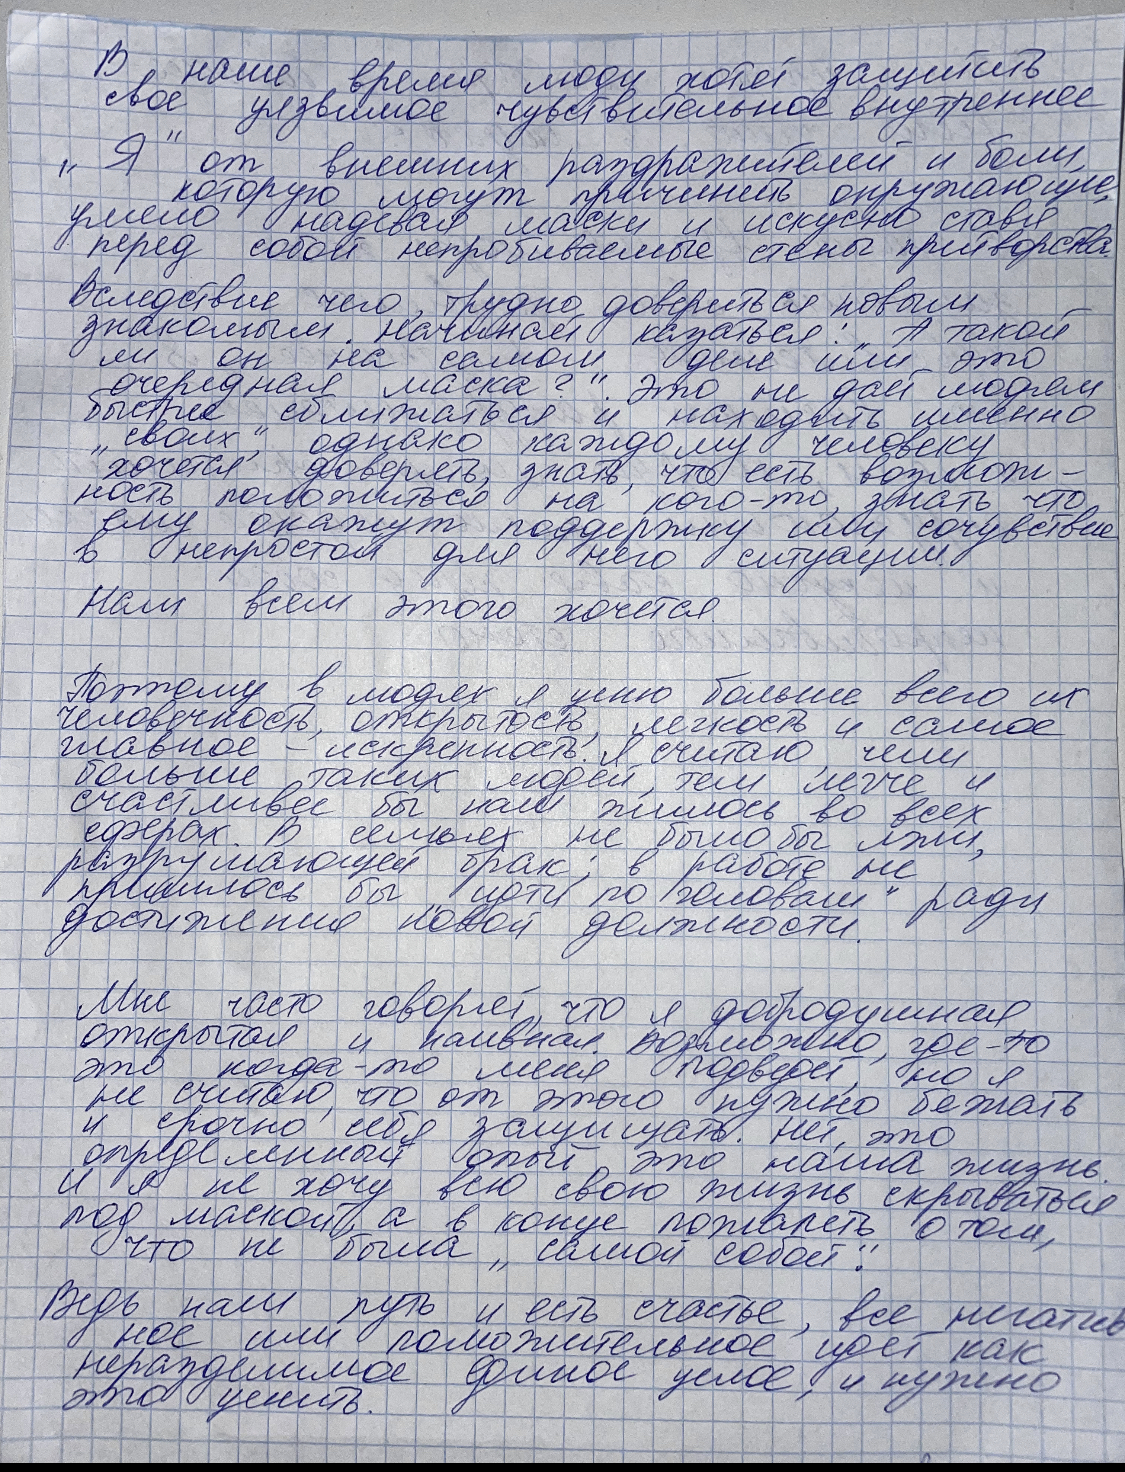 В наше время люди хотят защитить
свое уязвимое чувствительное внутреннее
„Я" от внешних раздражителей и боли,
которую могут причинить окружающие,
умело надевая маски и искусно ставя
перед собой непробиваемые стены притворства.
Вследствие чего, трудно довериться новым
знакомым. Начинает казаться: „А такой
ли он на самом деле или это
очередная маска?". Это не даёт людям
быстрее сближаться и находить именно
„своих", однако каждому человеку
хочется доверять, знать, что есть возмож-
ность положиться на кого-то, знать что
ему окажут поддержку или сочувствие
в непростой для него ситуации.
Нам всем этого хочется.
Поэтому в людях я ценю больше всего их
человечность, открытость, легкость и самое
главное – искренность. Я считаю, чем
больше таких людей, тем легче и
счастливее бы нам жилось во всех
сферах. В семьях не было бы лжи,
разрушающей брак; в работе не
пришлось бы „идти по головам" ради
достижения новой должности.
Мне часто говорят, что я добродушная
открытая и наивная. Возможно, где-то
это когда-то меня подведет, но я
не считаю, что от этого нужно бежать
и срочно себя защищать. Нет, это
определенный опыт, это наша жизнь.
И я не хочу всю свою жизнь скрываться
под маской, а в конце пожалеть о том,
что не была „самой собой".
Ведь наш путь и есть счастье, все негатив
ное или положительное идет как
неразделимое единое целое, и нужно
это ценить.